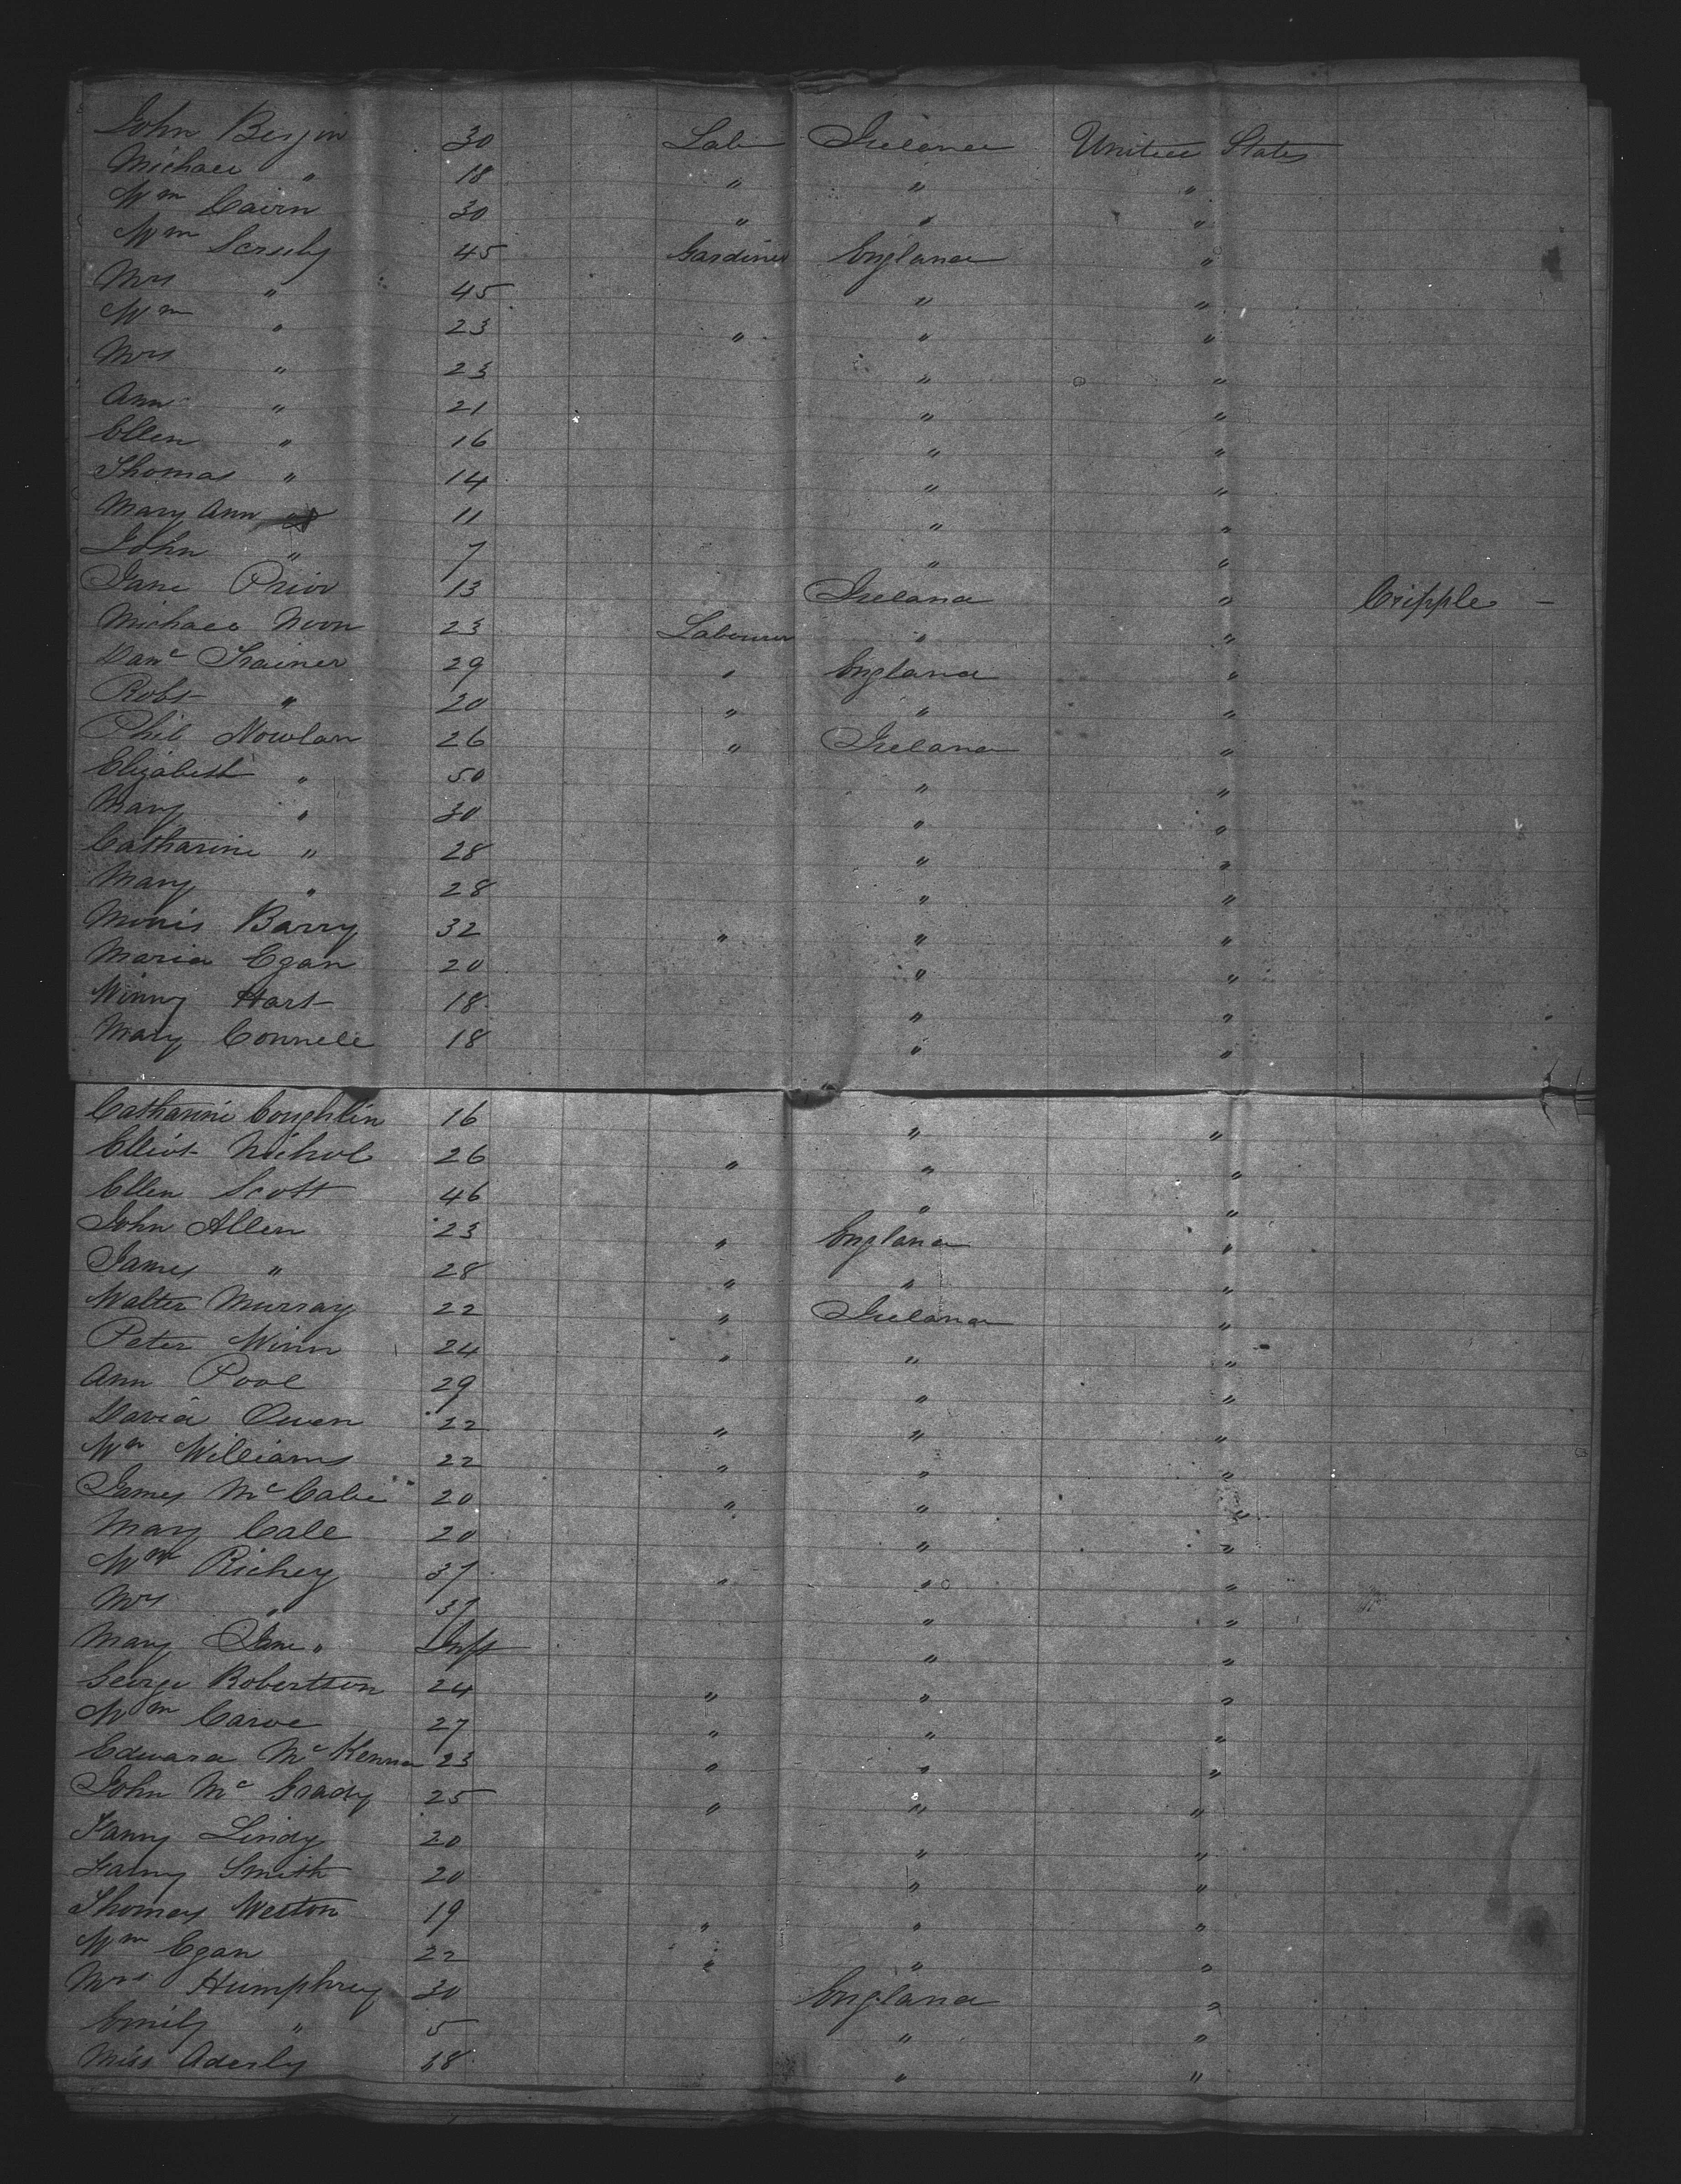 John Bergin 30 Lab Ireland United States
Michael " 18 " " "
Wm Cairn 30 " " "
Wm Scruby 45 Gardiner England "
Mrs " 45 " "
Wm " 23 " " "
Mrs " 23 " "
Ann " 21 " "
Ellen " 16 " "
Thomas " 14 " "
Mary Ann " 11 " "
John " 7 " "
Jane Prior 13 Ireland " Cripple -
Michael Noon 23 Labourer " "
Danl Trainer 29 " England "
Robt " 20 " " "
Phil Nowlan 26 " Ireland "
Elizabeth " 50 " "
Mary " 30 " "
Catharine " 28 " "
Mary " 28 " "
Morris Barry 32 " " "
Maria Egan 20 " "
Winny Hart 18 " "
Mary Connell 18 " "
Catharine Coughlin 16 " "
Elliot Nichol 26 " " "
Ellen Scott 46 " "
John Allen 23 " England "
James " 28 " " "
Walter Murray 22 " Ireland "
Peter Winn 24 " " "
Ann Pool 29 " "
David Owen 22 " " "
Wm Williams 22 " " "
James McCabe 20 " " "
Mary Cale 20 " "
Wm Richey 37 " " "
Mrs " 37 " "
Mary Jane " Inft " "
George Robertson 24 " " "
Wm Carve 27 " " "
Edward McKenna 23 " " "
John McGrady 25 " " "
Fanny Lindy 20 " "
Fanny Smith 20 " "
Thomas Weston 19 " " "
Wm Egan 22 " " "
Mrs Humphrey 30 England "
Emily " 5 " "
Miss Aderly 18 " "